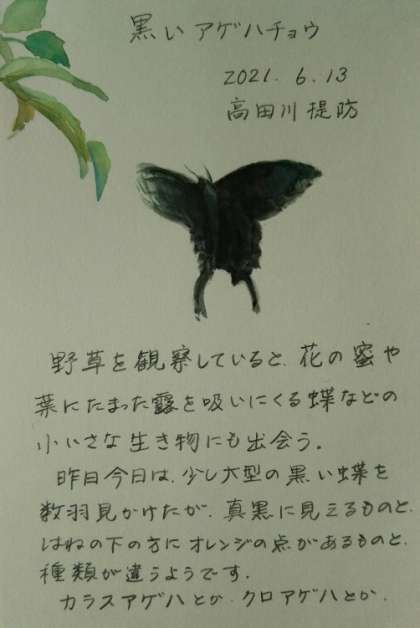 黒いアゲハチョウ
2021.6.13
高田川堤防
野草を観察していると、花の蜜や
葉にたまった露を吸いにくる蝶などの
小いさな生き物にも出会う。
昨日今日は、少し大型の黒い蝶を
数羽見かけたが、真黒に見えるものと、
はねの下の方にオレンジの点があるものと、
種類が違うようです。
カラスアゲハとか、クロアゲハとか、